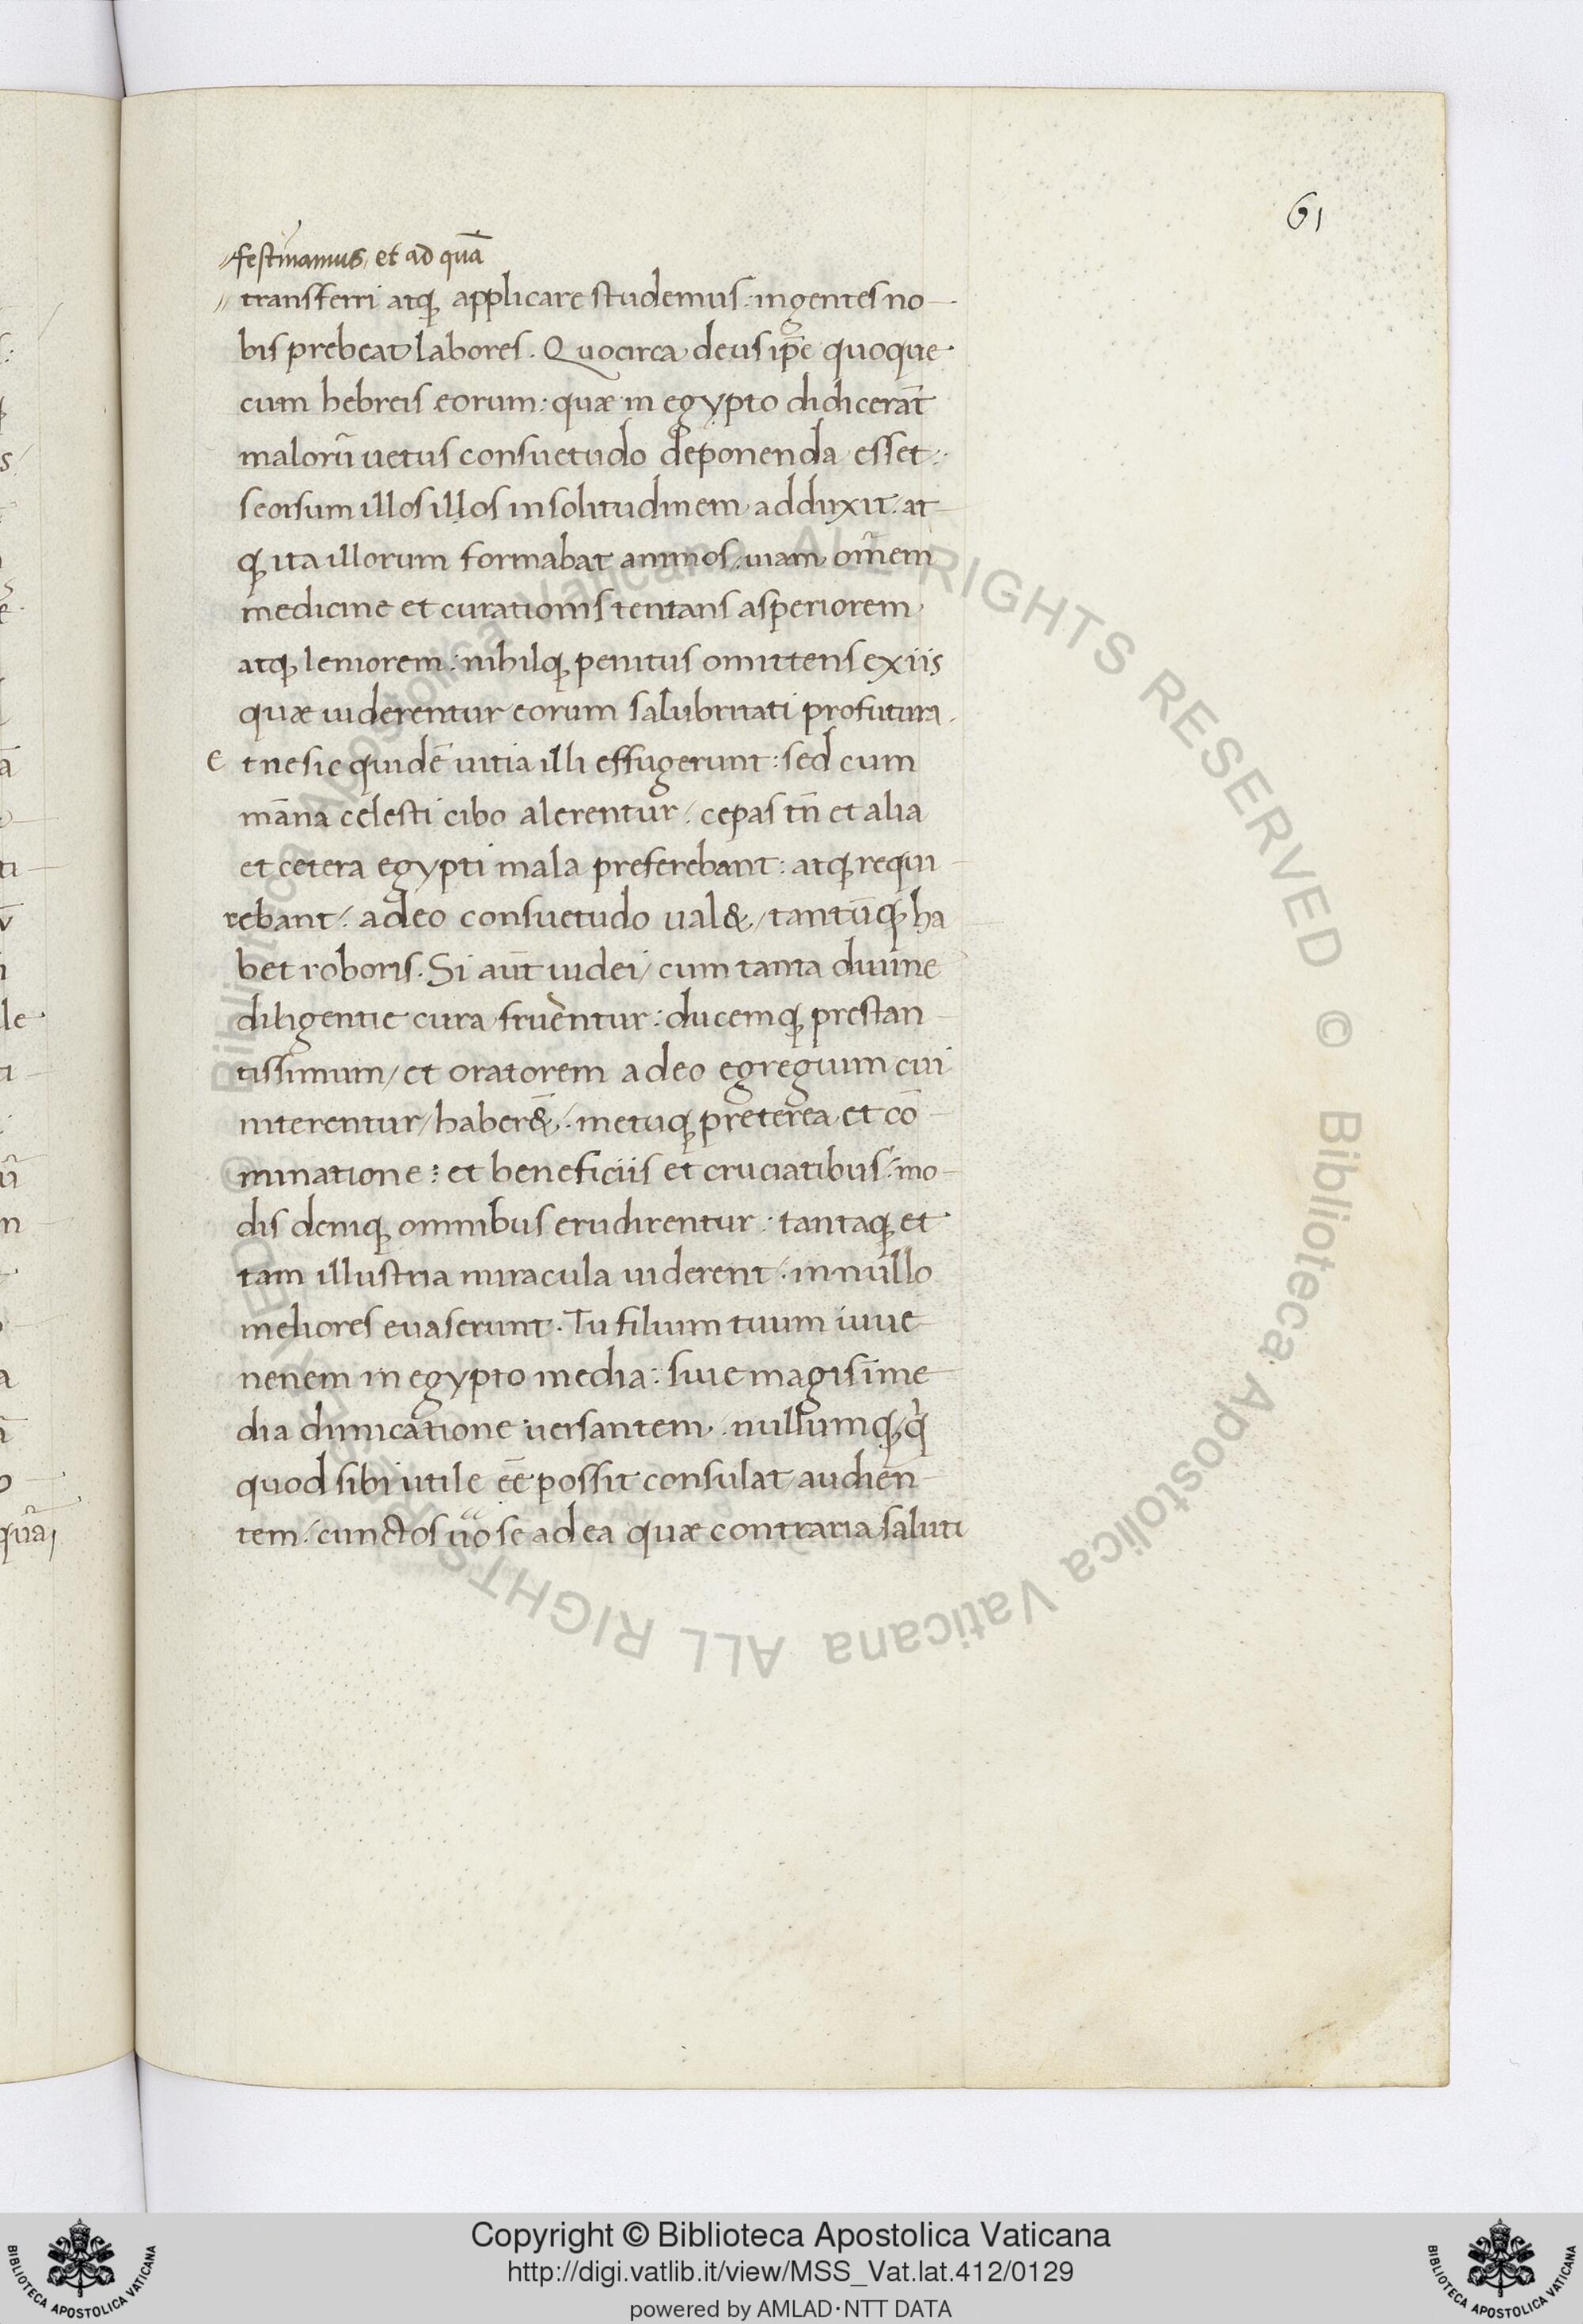 61
festinamus, et ad quā
transferri atq; applicare studemus: ingentes no
bis prebeat labores. Quocirca deus ip̄e quoque
cum hebreis eorum: quæ in egypto didicerāt
malorū uetus consuetudo deponenda esset:
seorsum illos illos in solitudinem adduxit: at
q; ita illorum formabat animos, uiam om̄em
medicine et curationis tentans asperiorem
atq; leniorem: nihilq; penitus omittens ex iis
quæ uiderentur eorum salubritati profutura.
et ne sic quidē uitia illi effugerunt: sed cum
māna celesti cibo alerentur, cepas tn̄ et alia
et cetera egypti mala preferebant: atq; requi
rebant, adeo consuetudo ual&, tantūq; ha
bet roboris. Si aūt iudei, cum tanta diuine
diligentie cura fruerentur: ducemq; prestan
tissimum, et oratorem adeo egregium cui
niterentur, haber&, metuq; preterea et cō
minatione: et beneficiis et cruciatibus: mo
dis deniq; omnibus erudirentur: tantaq; et
tam illustria miracula uiderent, in nullo
meliores euaserunt. Tu filium tuum iuue
nenem in egypto media: siue magis ī me
dia dimicatione uersantem, nullumq;
quod sibi utile eē possit consulat audien
tem, cunctos uo se ad ea quæ contraria saluti
Copyright © Biblioteca Apostolica Vaticana
http://digi.vatlib.it/view/MSS_Vat.lat.412/0129
powered by AMLAD·NTT DATA